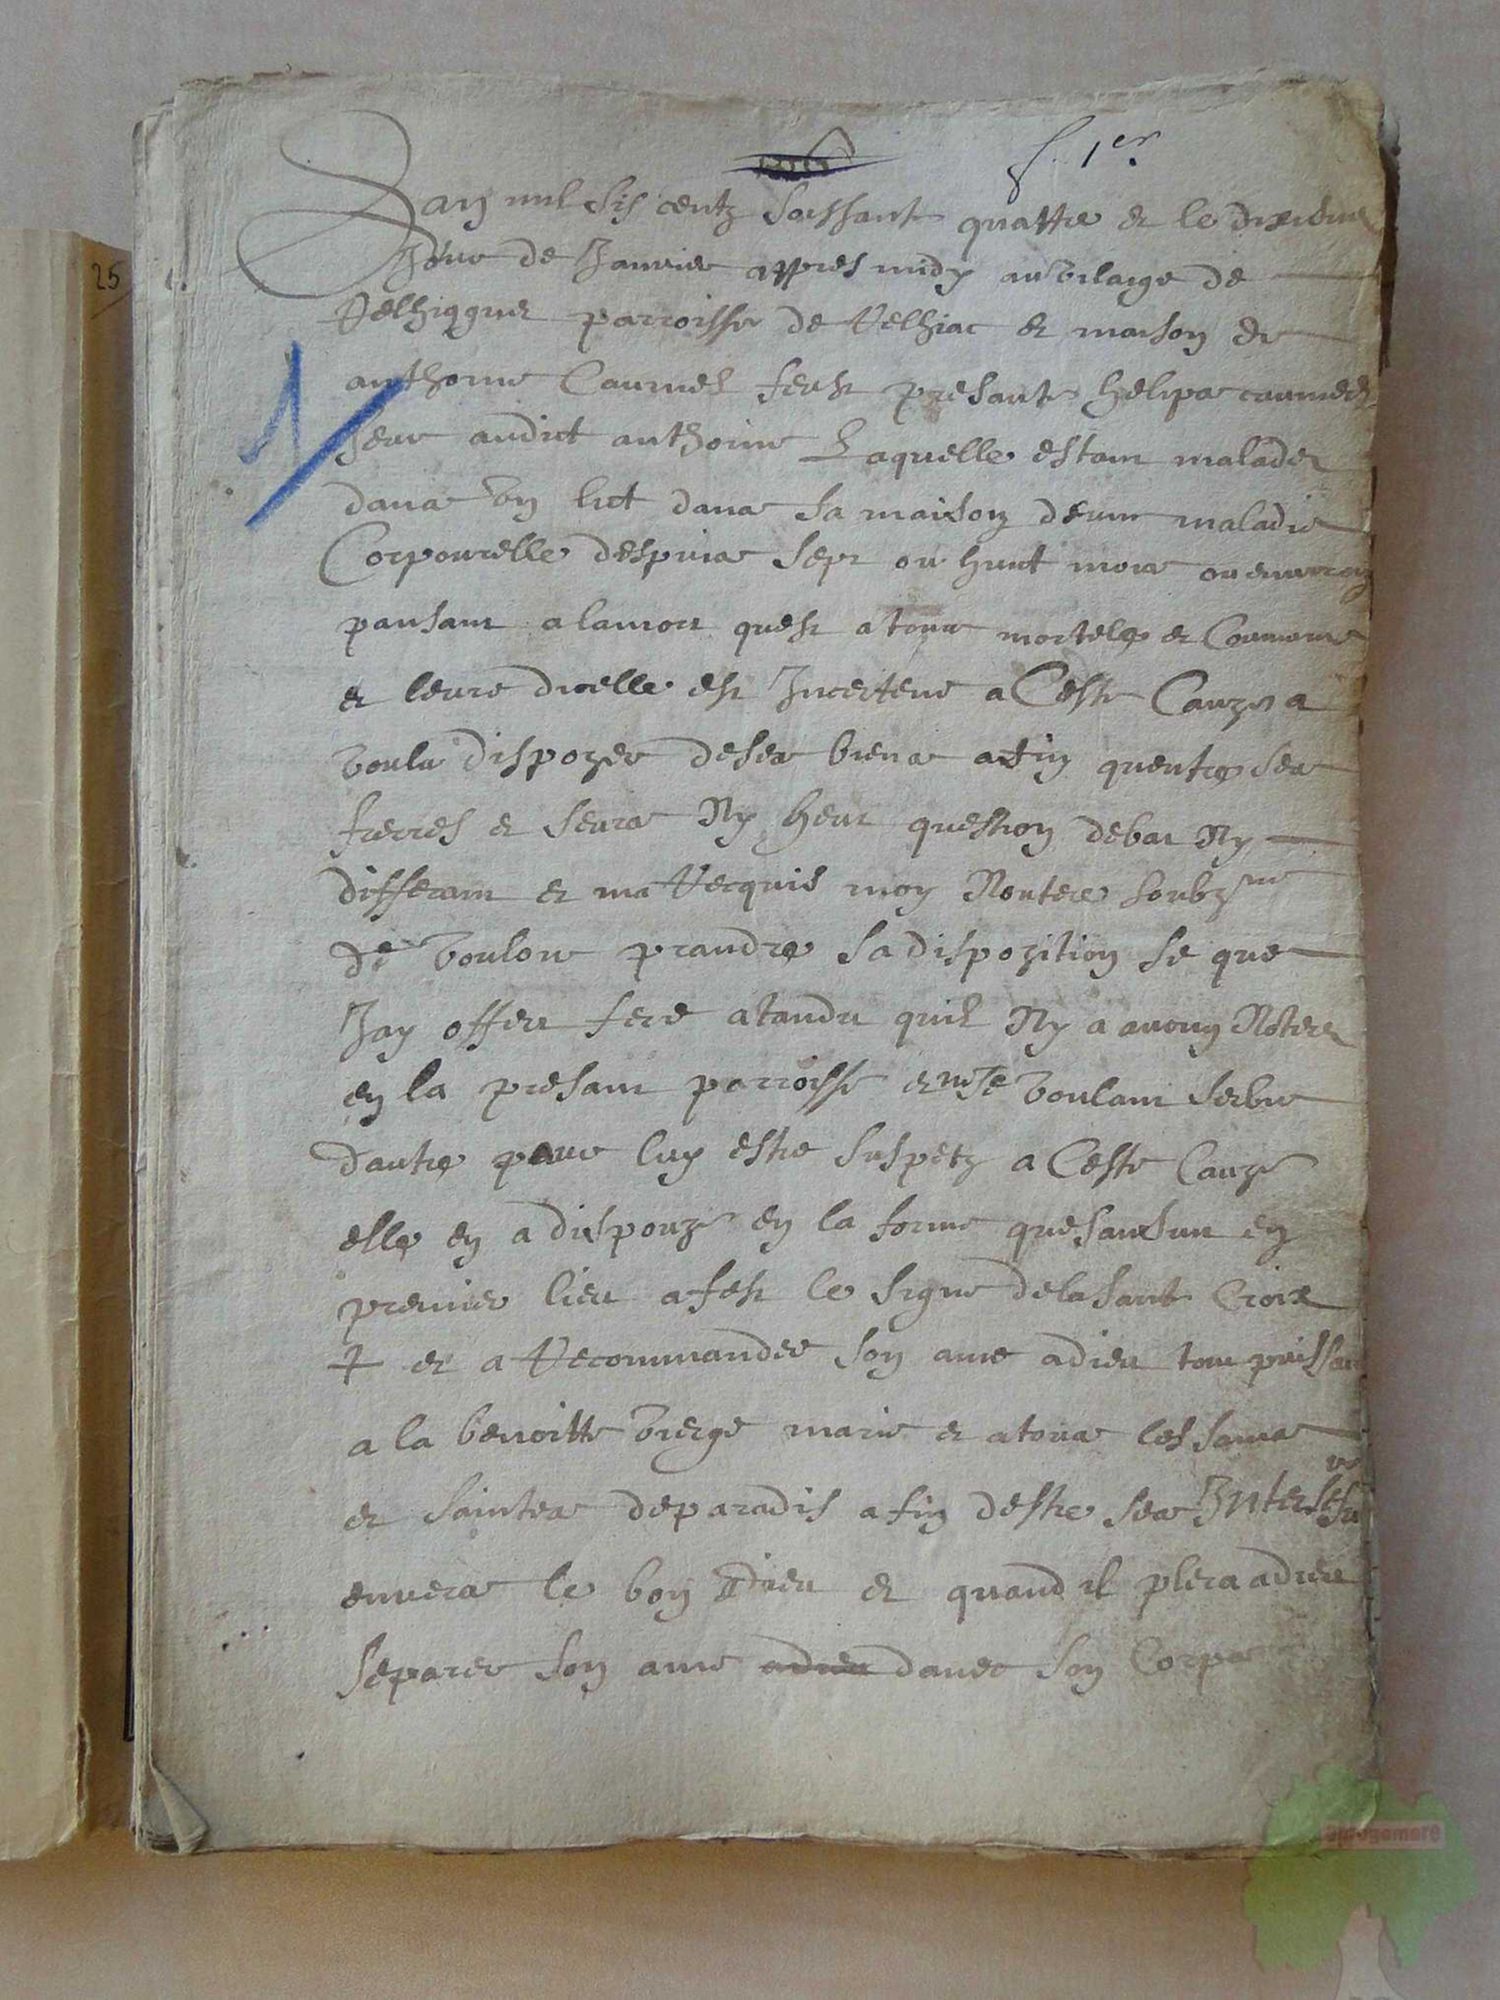 f. 1er
25
Lan mil sis centz soissante quattre et le dixiesme
Jour de Janvier appres midy au vilaige de
parroisse de Relhiac et maison de
anthoine Caumel feust presante helipe caumel
seur audict anthoine Laquelle estant malade
dans un lict dans sa maison deune maladie
Corpourelle despuis sept ou huict mois ou environ
pansant a la mort quest a tous mortels et Coumune
et leure dicelle est Incertene a Ceste Cauze a
voulu dispozer de ses biens afin quentre ses
frerres et seurs Ny heut question debat Ny
differant et ma Recquis moy Noutere soubzne
de vouloir prandre sa dispozition se que
Jay offert fere atandu quil Ny a aucung Notere
en la presant parroisse et voulant servir
dautre pour luy estre suspetz a Ceste Cauze
elle en a dispouze en la forme que sansuit en
premier lieu a fest le signe de la sante Croix
+ et a Recommande son ame a dieu tout puissant
a la benoitte vierge marie et a tous les sains
et saintes de paradis afin destre ses
envers le bon dieu et quand il plera a dieu
separer son ame davec son Corps
1
geneagomere